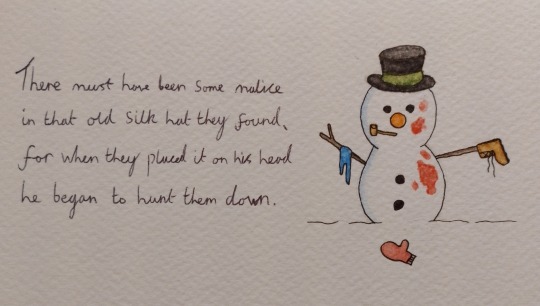 There must have been some malice
in that old silk hat they found,
for when they placed it on his head
he began to hunt them down.